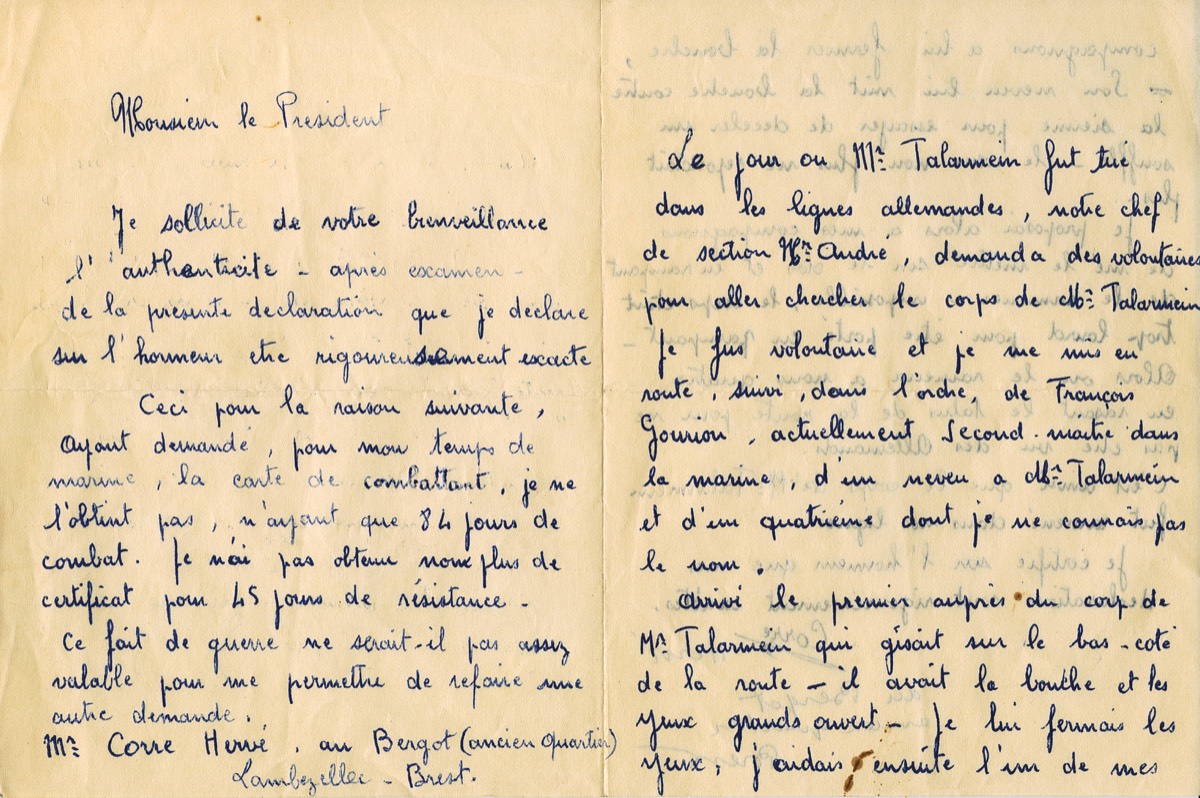 Monsieur le President
Je sollicite de votre bienveillance
l'authenticite - après examen -
de la présente declaration que je déclare
sur l'honneur etre rigoureusement exacte
Ceci pour la raison suivante,
Ayant demandé, pour mon temps de
marine, la carte de combattant, je ne
l'obtint pas, n'ayant que 84 jours de
combat. Je n'ai pas obtenu non plus de
certificat pour 45 jours de résistance -
Ce fait de guerre ne serait-il pas assez
valable pour me permettre de refaire une
autre demande.
Mr Corre Hervé. au Bergot (ancien Quartier)
Lambezellec - Brest.
Le jour ou Mr Talarmein fut tué
dans les lignes allemandes, notre chef
de section Mr André, demanda des volontaires
pour aller chercher le corps de Mr Talarmein
Je fus volontaire et je me mis en
route, suivi, dans l'ordre, de François
Gourion, actuellement Second-maitre dans
la marine, d'un neveu a Mr Talarmein
et d'un quatriéme dont je ne connais pas
le nom.
Arrivé le premier auprès du corp de
Mr Talarmein qui gisait sur le bas-coté
de la route - il avait la bouche et les
yeux grands ouvert - Je lui fermais les
yeux, j'aidais ensuite l'un de mes